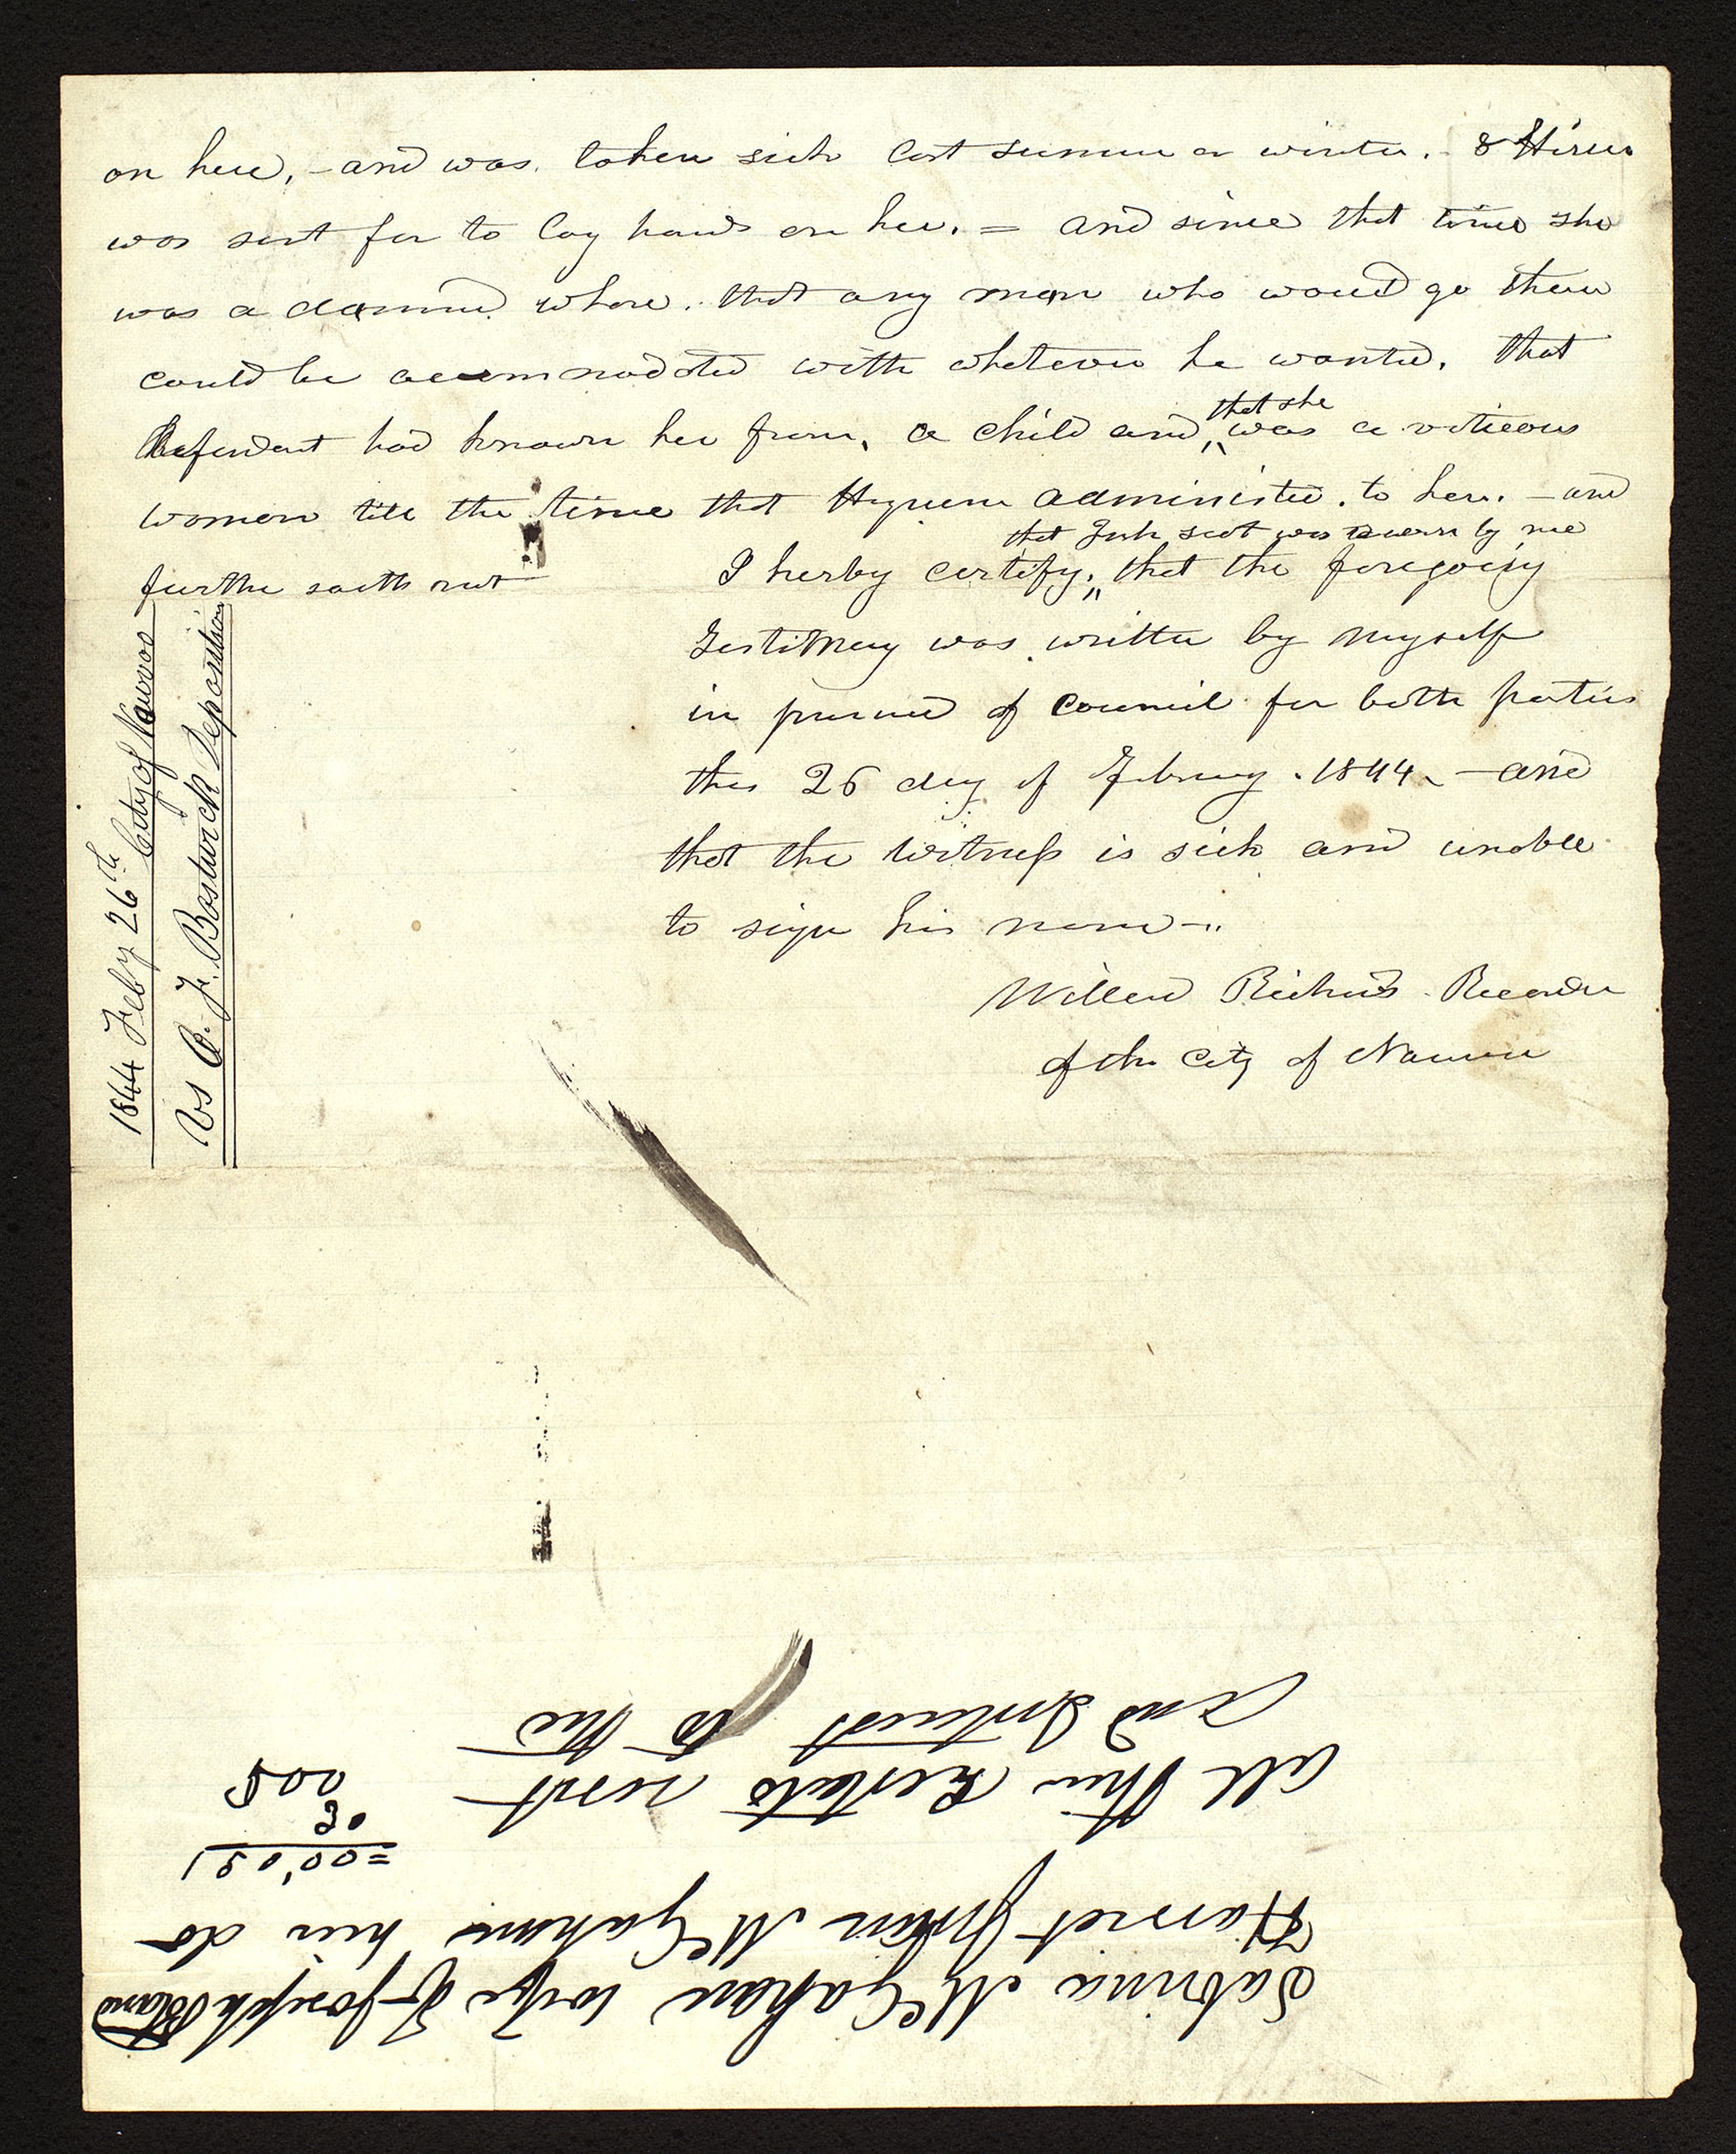 on her, - and was taken sick last summer or winter. - & Hiram
was sent for to lay hands on her. = and since that time she
was a damnd whore. that any man who would go there
could be accommodated with whatever he wanted. that
that she
Defendant had known her from, a child and, was a virtuous
women till the time that Hyrum administer. to her. - and
further saith not
that Josh. Scot was sworn by me
I herby certify, that the foregoing
Testimony was written by myself
in presence of Council for both parties
this 26 day of February. 1844. - and
that the witness is sick and unable
to sign his name -
Willard Richards. Recorder
of the City of Nauvoo
1844 Feby 26th City of Nauvoo
vs O. F. Bostwick Deposition
Sabrina McGahan wife of Joseph Bland
Harriet McGahan her do
180,00=
30
500
all their Estate
and Interest to the